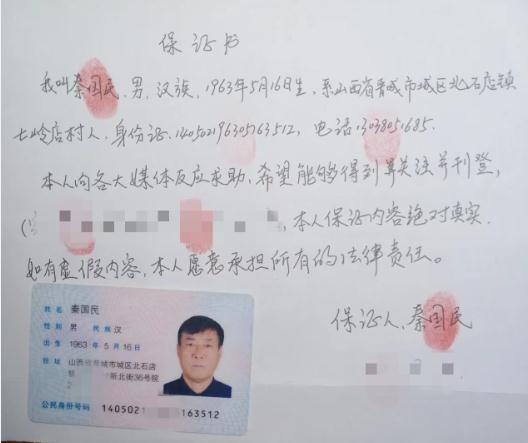 保证书
我叫秦国民,男,汉族,1963年5月16生,系山西省晋城市城区北石店镇
七岭店村人,身份证,
本人向各大媒体反应求助,希望能够得到
关注并刊登,
本人保证内容绝对真实.
如有虚假内容,本人愿意承担所有的法律责任。
保证人,秦国民
姓名 秦国民
性别 男 民族 汉
出生 1963 年 5 月 16 日
住址 山西 城市城区北石店
新北街36号院
公民身份号码 1405021 163512